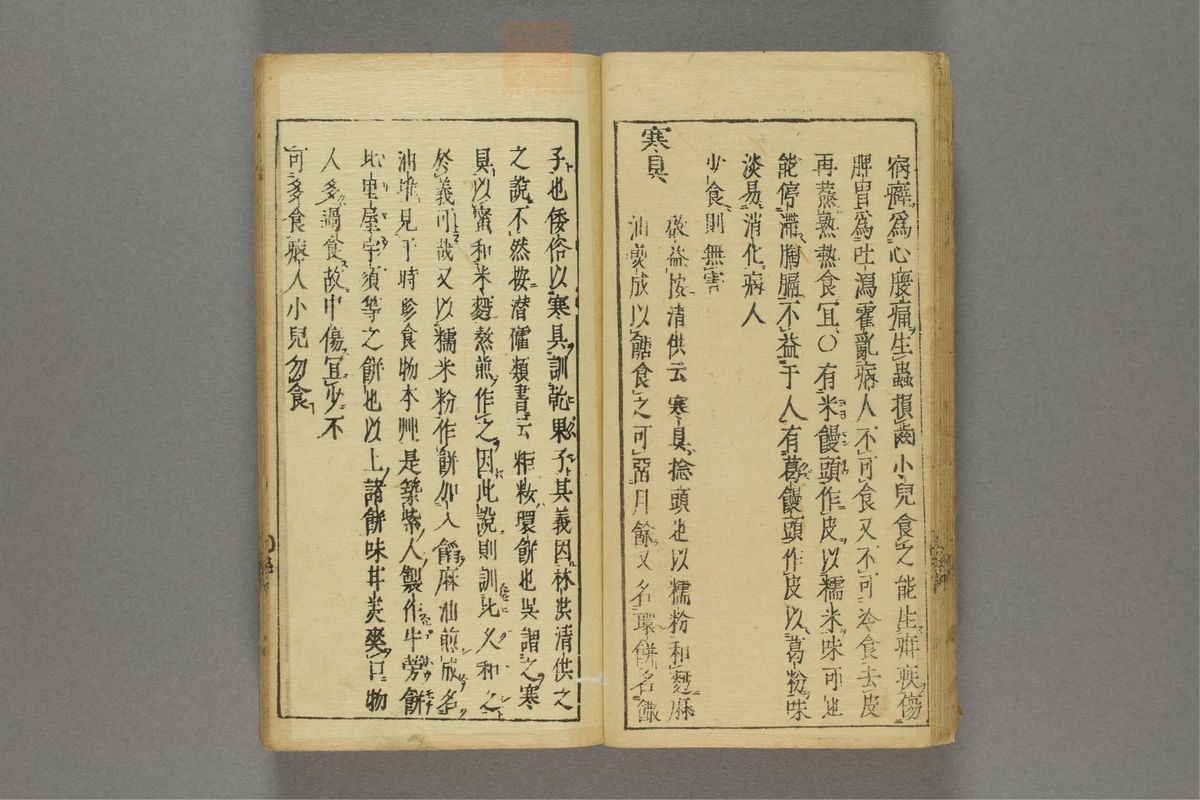 病癖爲心腹痛生蟲損齒小兒食之能生疳疾傷
脾胃爲吐瀉霍亂病人不可食又不可冷食去皮
再蒸熟熱食宜〇有米饅頭作皮以糯米味可也
能停滯胸膈不益于人有葛饅頭作皮以葛粉味
淡易消化病人
少食則無害
寒具
敬益按清供云寒具捻頭也以糯粉和麪麻
油煎成以餹食之可畱月餘又名環餅名饊
子也倭俗以寒具訓乾果子其義因林洪清供之
之說不然按潛確類書云粔籹環餅也吳謂之寒
具以蜜和米麪熬煎作之因此說則訓比久和之
於義可哉又以糯米粉作餅加入餡麻油煎成名
油堆見于時珍食物本艸是築紫人製作牛蒡餅
比电屋宇須等之餅也以上諸餅味甘美爽口物
人多過食故中傷宜少不
可多食癖人小兒勿食